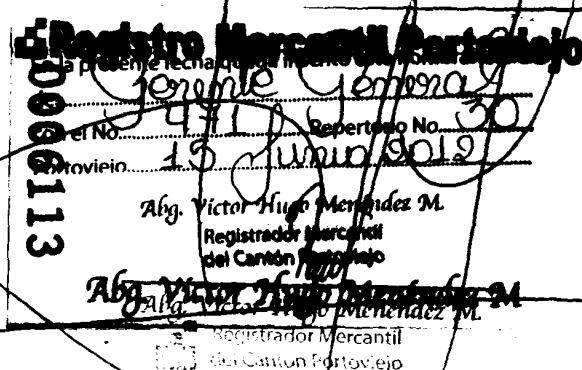 Registro Mercantil Portoviejo
la presente fecha queda inscrito
Gerente General
el No. 471 Repertorio No. 30
Portoviejo 15 Junio 2012
Abg. Víctor Hugo Menéndez M.
Registrador Mercantil
del Cantón Portoviejo
Abg. Víctor Hugo Menéndez M
Abg. Víctor Hugo Menéndez M.
Registrador Mercantil
del Cantón Portoviejo
0006113